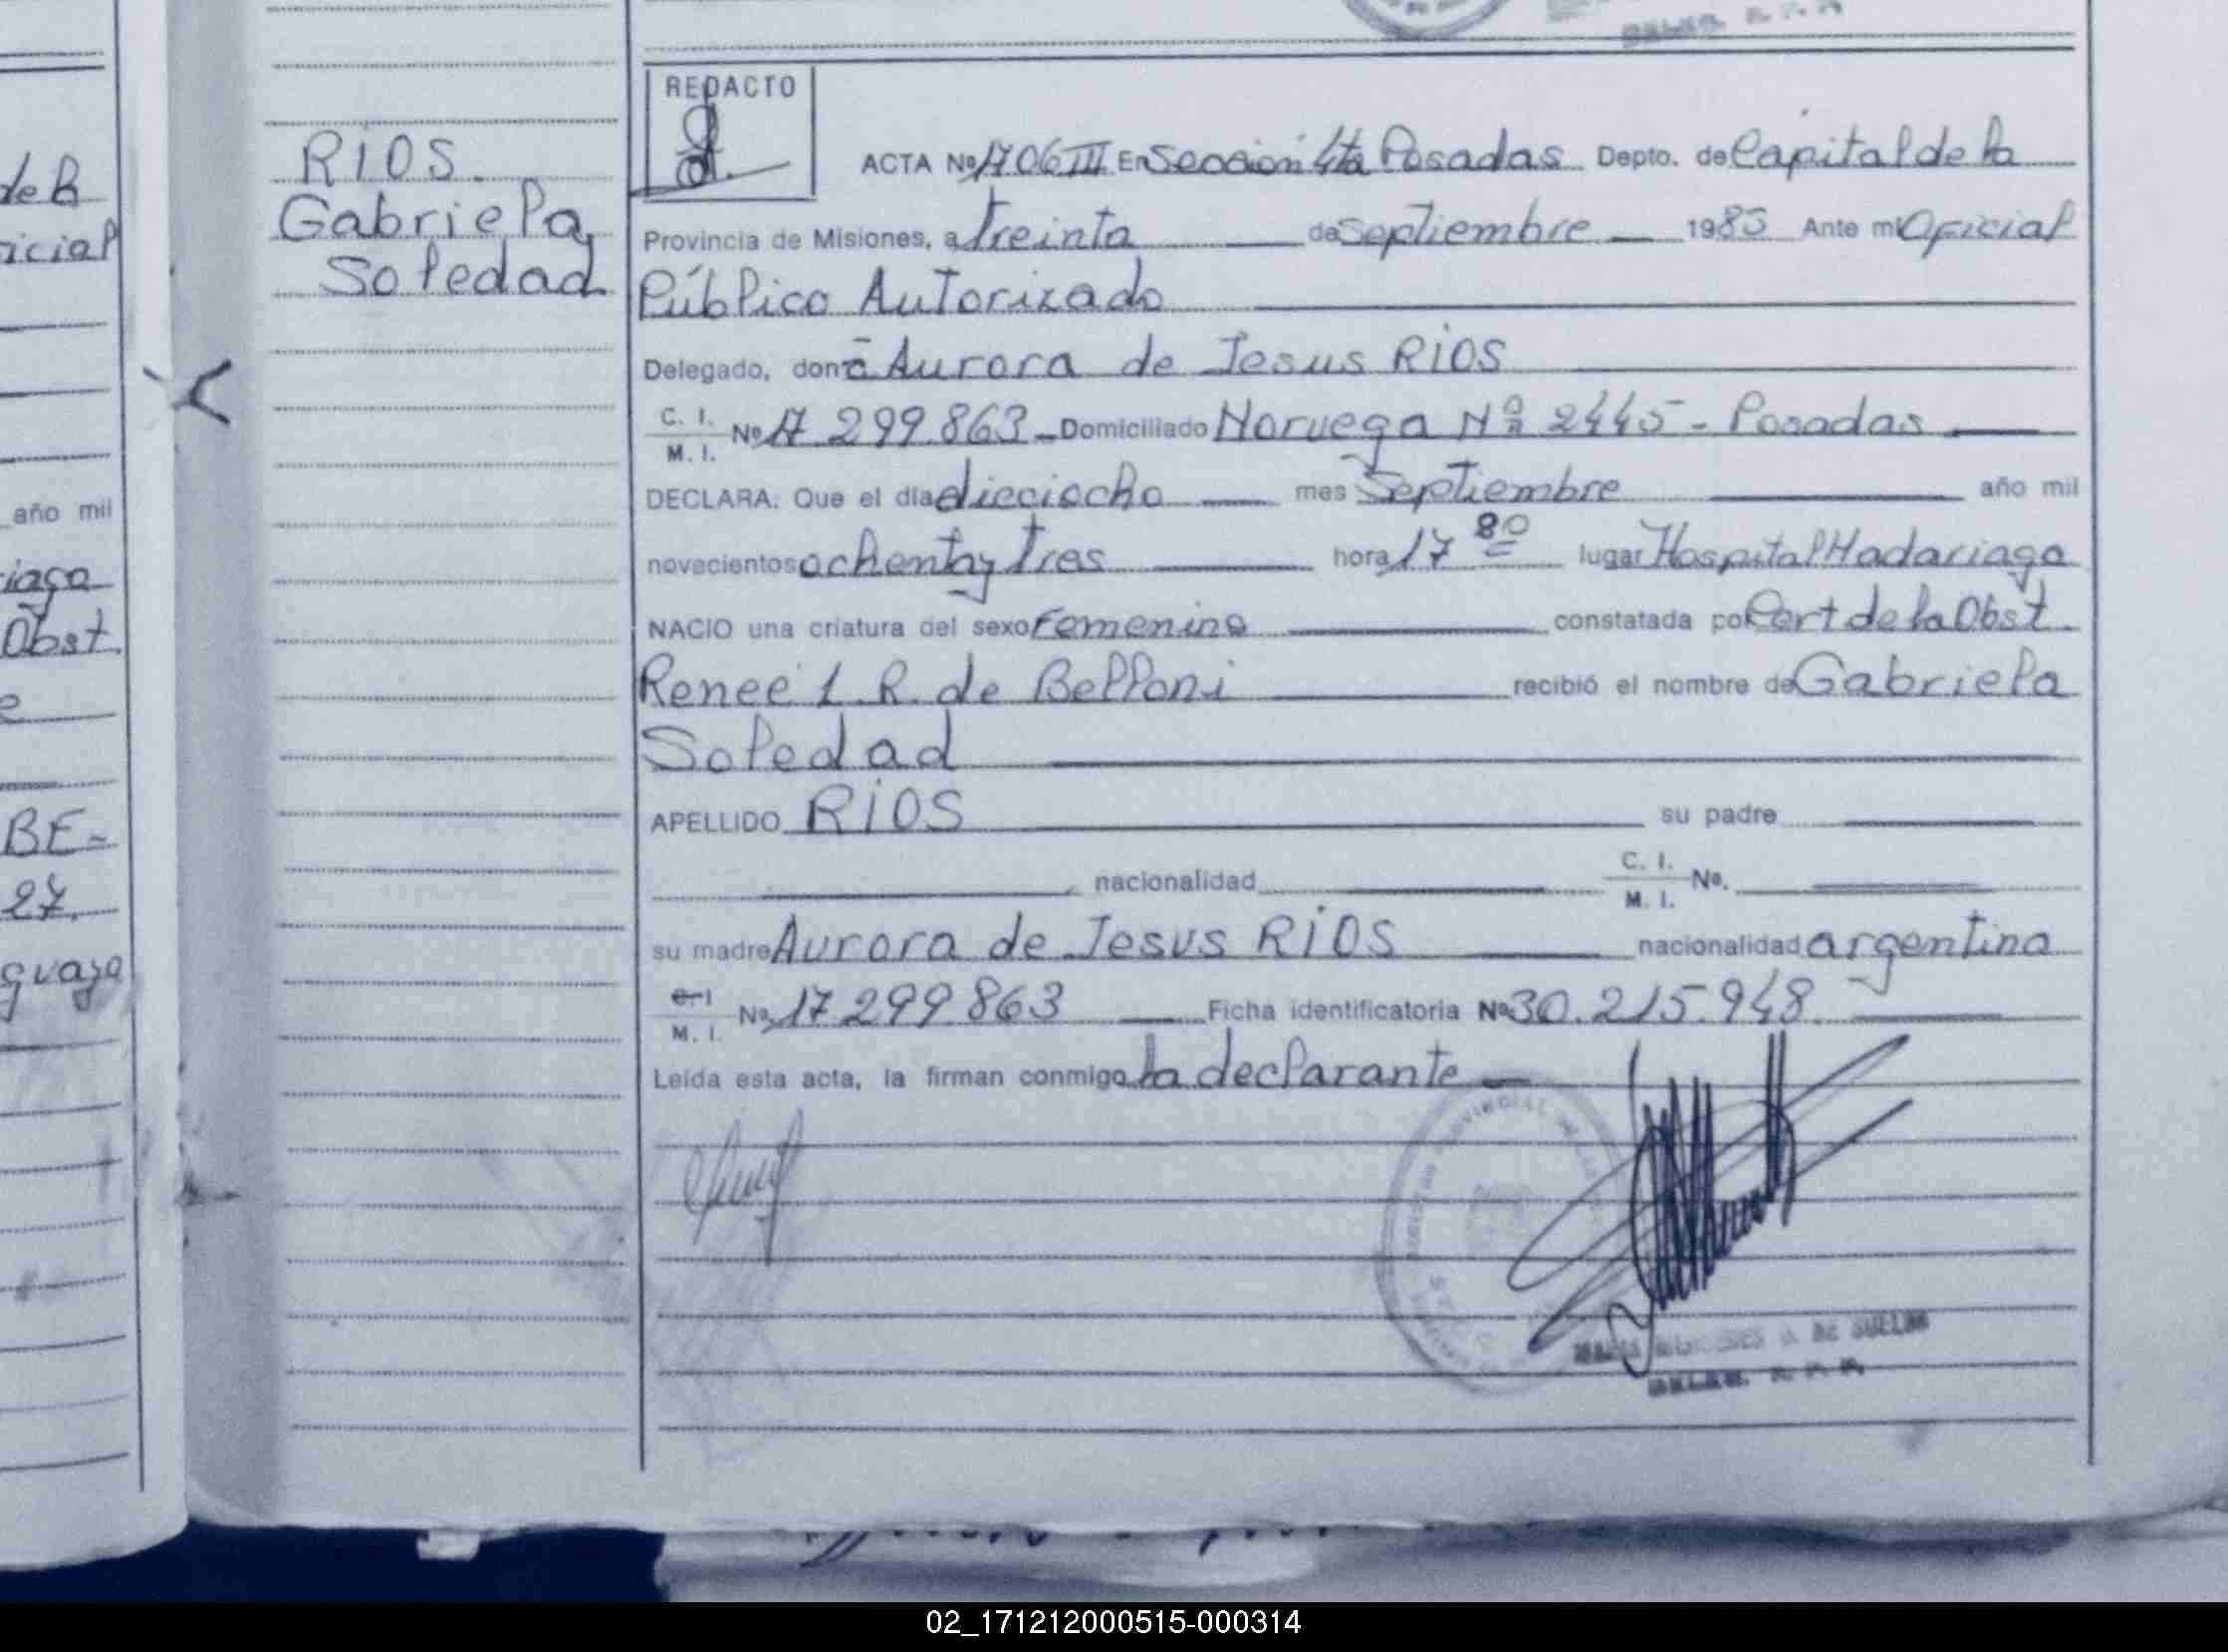 RIOS.
Gabriela
Soledad
REDACTO
ACTA Nº 1706 III En Sección 4ta Posadas Depto. de Capital de la
Provincia de Misiones, a treinta de Septiembre 1983 Ante mi Oficial
Público Autorizado
Delegado, don ã Aurora de Jesus RIOS
C. I.
M. I. Nº 17 299.863 - Domiciliado Noruega Nº 2445 - Posadas
DECLARA: Que el día dieciocho mes Septiembre año mil
novecientos ochenta y tres hora 17 lugar Hospital Madariaga
NACIO una criatura del sexo femenino constatada por Cert de la Obst.
Renee L R. de Belloni recibió el nombre de Gabriela
Soledad
APELLIDO RIOS su padre
nacionalidad C. I.
M. I. Nº.
su madre Aurora de Jesus RIOS nacionalidad argentina
C. I
M. I. Nº 17 299 863 Ficha identificatoria Nº 30.215.948
Leída esta acta, la firman conmigo la declarante
DE
de la
icial
año mil
iaga
Obst.
e
BE-
27.
guaya
02_171212000515-000314